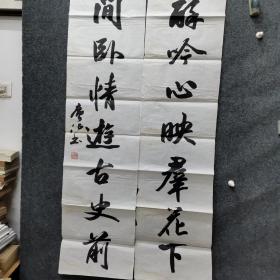 醉吟心映群花下
閒卧情遊古史前